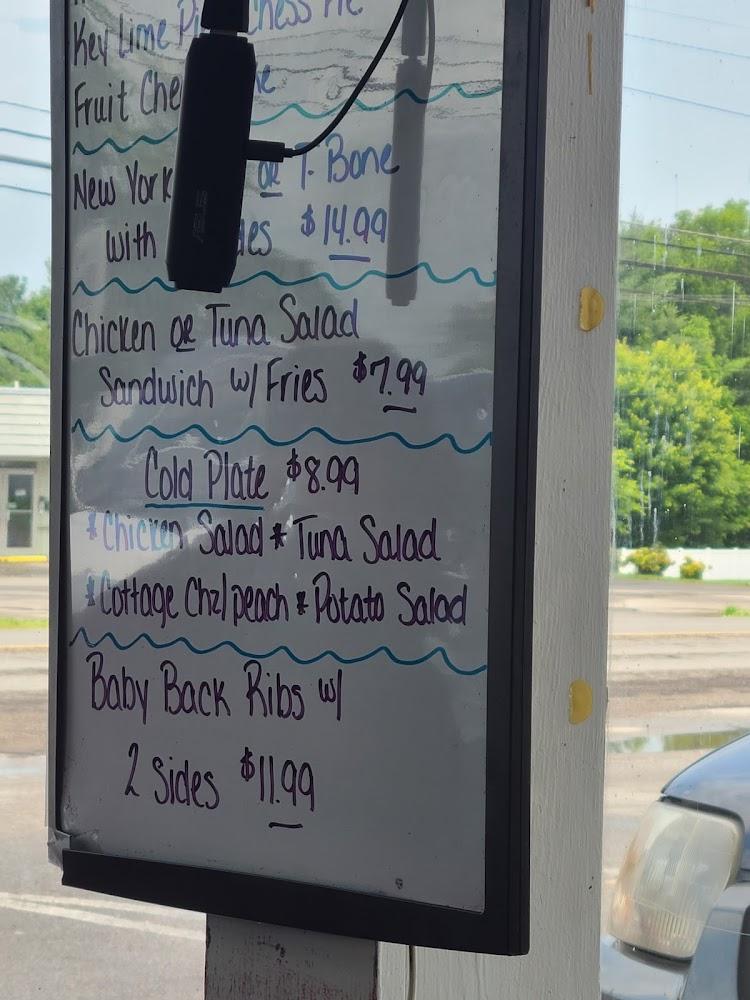 Key Lime Pie Chess Pie
Fruit Che
New York or T-Bone
with sides $14.99
Chicken or Tuna Salad
Sandwich w/ Fries $7.99
Cold Plate $8.99
*Chicken Salad * Tuna Salad
*Cottage Chz/peach * Potato Salad
Baby Back Ribs w/
2 Sides $11.99
ASUS